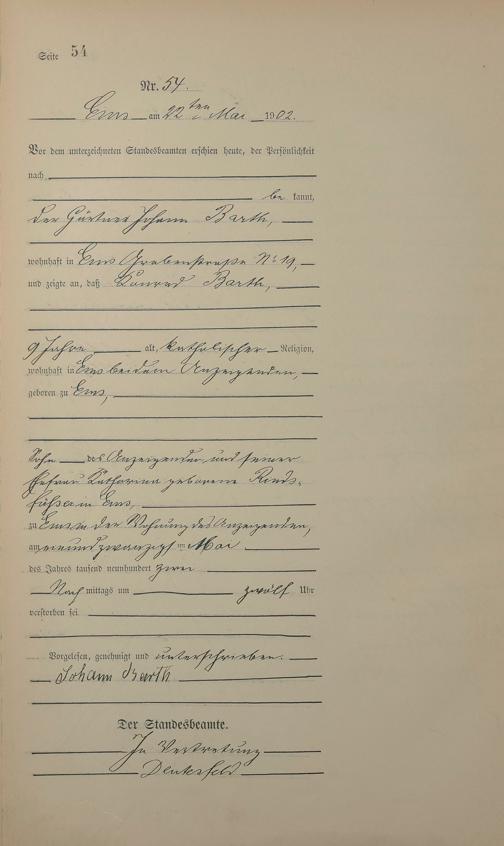 Seite 54
Nr. 54.
Ems am 22ten Mai 1902.
Vor dem unterzeichneten Standesbeamten erschien heute, der Persönlichkeit
nach
be kannt,
der Gärtner Johann Barth,
wohnhaft in Ems Grabenstraße No 19,
und zeigte an, daß Konrad Barth,
9 Jahre alt, katholischer Religion,
wohnhaft in Ems bei dem Anzeigenden,
geboren zu Ems,
Sohn des Anzeigenden und seiner
Ehefrau Katharina geborene
in Ems,
zu Ems in der Wohnung des Anzeigenden,
am einundzwanzigsten Mai
des Jahres tausend neunhundert zwei
Nach mittags um zwölf Uhr
verstorben sei.
Vorgelesen, genehmigt und unterschrieben.
Johann Barth
Der Standesbeamte.
In Vertretung